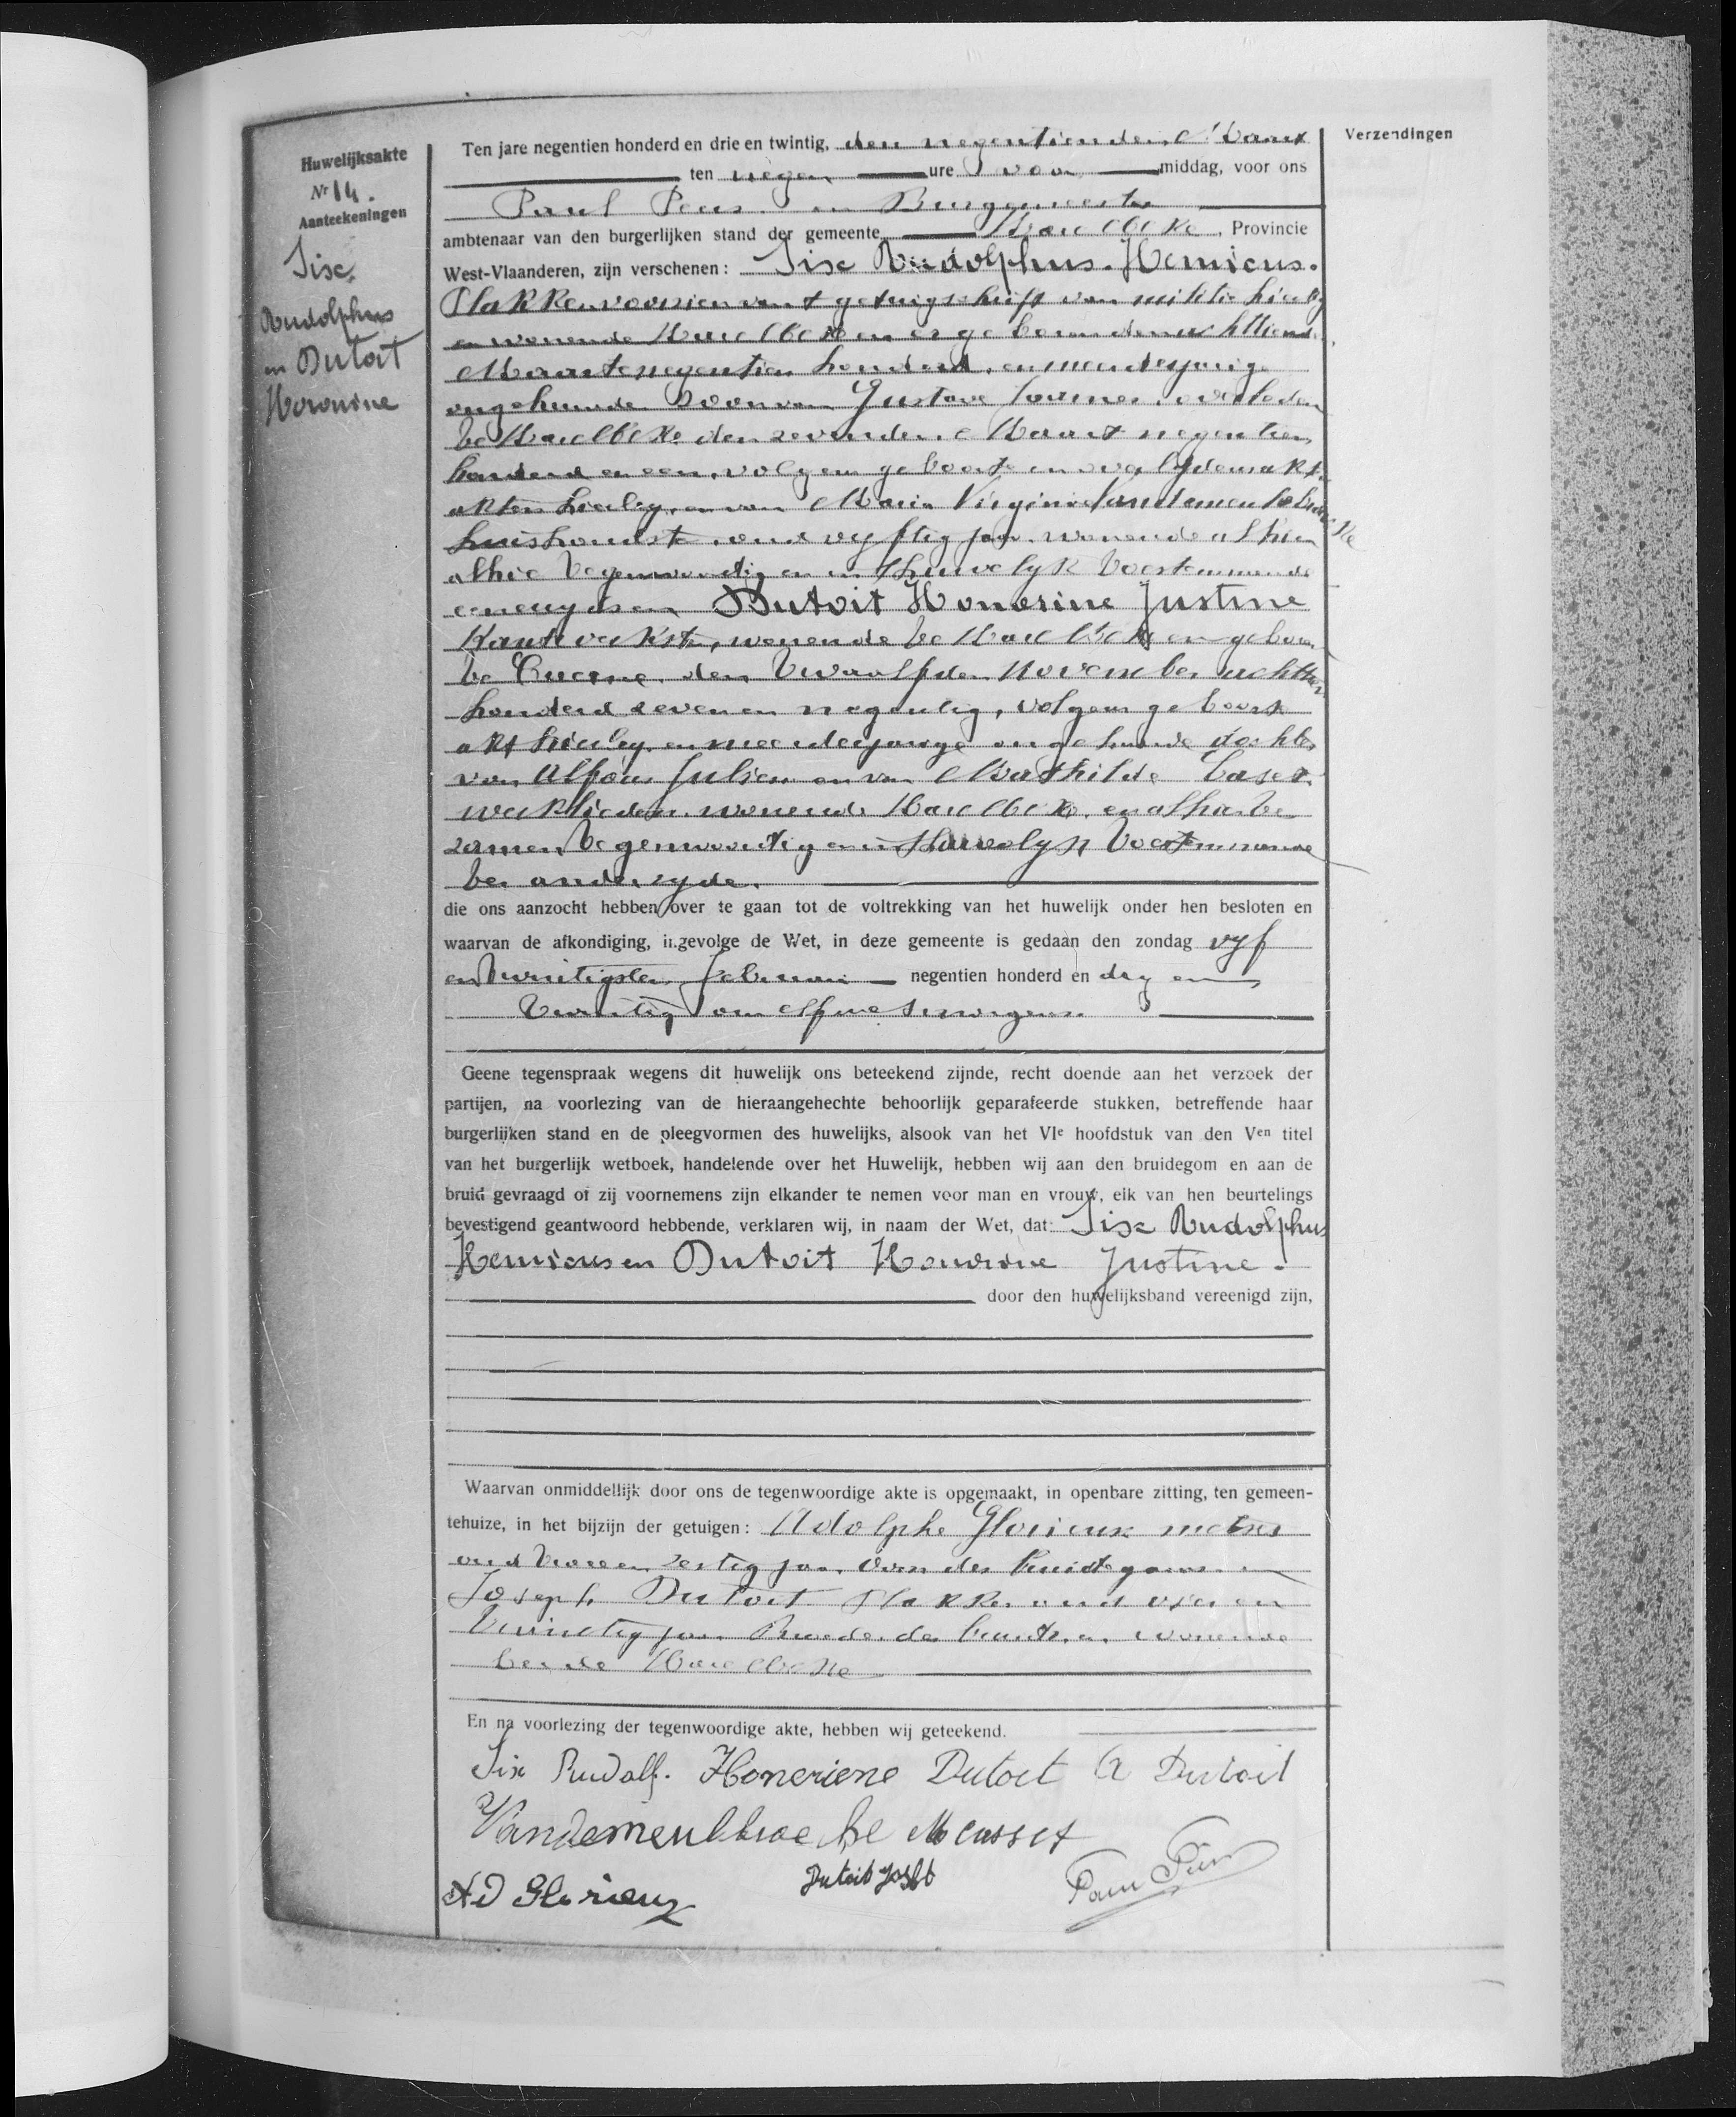 Huwelijksakte
Nr 14.
Aanteekeningen
Six
Rudolphus
en Dutoit
Honorine
Verzendingen
Ten jare negentien honderd en drie en twintig, den negentienden Maart
ten negen ure voor middag, voor ons
Paul Peers Burggmeester
ambtenaar van den burgerlijken stand der gemeente Harelbeke, Provincie
West-Vlaanderen, zijn verschenen: Six Rudolphus Henricus.
Vlakker voorzien van 't getuigschrift van militie hierby
en wonende Harelbeke en er geboren den achttiende
Maarte negentien honderd, en meerderjarige
ongehuwde zoon van Gustave overleden
te Harelbeke den zevenden Maart negentien
honderd en een, volgens geboorte en overlydensakt
akten hierby, en van Maria Virginie Vandemeulebroucke
huishoudster oud vyftig jaar wonende alhier
alhier tegenwoordig en in 't huwelyk toestemmende
eenerzyds en Dutoit Honorine Justine
wonende te Harelbeke en geboren
te Cuerne den twaalfden November achttien
honderd zeven en negentig, volgens geboorte
akt hierby, en meerderjarige ongehuwde dochter
van Alfons Julien en van Mathilde Casset
werklieden wonende Harelbeke, en alhier te
zamen tegenwoordig en in 't huwelyk toestemmende
ter anderzyde.
die ons aanzocht hebben over te gaan tot de voltrekking van het huwelijk onder hen besloten en
waarvan de afkondiging, ingevolge de Wet, in deze gemeente is gedaan den zondag vyf
en twintigsten Februari negentien honderd en dry en
twintig om elf ure 's morgens.
Geene tegenspraak wegens dit huwelijk ons beteekend zijnde, recht doende aan het verzoek der
partijen, na voorlezing van de hieraangehechte behoorlijk geparafeerde stukken, betreffende haar
burgerlijken stand en de pleegvormen des huwelijks, alsook van het VIe hoofdstuk van den Ven titel
van het burgerlijk wetboek, handelende over het Huwelijk, hebben wij aan den bruidegom en aan de
bruid gevraagd of zij voornemens zijn elkander te nemen voor man en vrouw, elk van hen beurtelings
bevestigend geantwoord hebbende, verklaren wij, in naam der Wet, dat: Six Rudolphus
Henricus en Dutoit Honorine Justine.
door den huwelijksband vereenigd zijn,
Waarvan onmiddellijk door ons de tegenwoordige akte is opgemaakt, in openbare zitting, ten gemeen-
tehuize, in het bijzijn der getuigen: Adolphe Glorieux metser
oud twee en zestig jaar, oom des bruidegoms en
Joseph Dutoit Vlakker oud vier en
twintig jaar Broeder der bruid, en wonende
beide Harelbeke
En na voorlezing der tegenwoordige akte, hebben wij geteekend.
Six Rudolf. Honeriene Dutoit A Dutoit
Vandemeulbroecke M Casset
Ad Glorieux
Dutoit Jospt